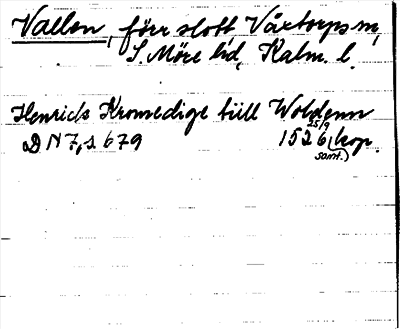 Vallen, förr slott Växtorps sn,
S. Möre hd, Kalm. l.
Henrick Kromedige till Woldenn
DN 7, s 679 1526 25/9 (kop.
samt.)